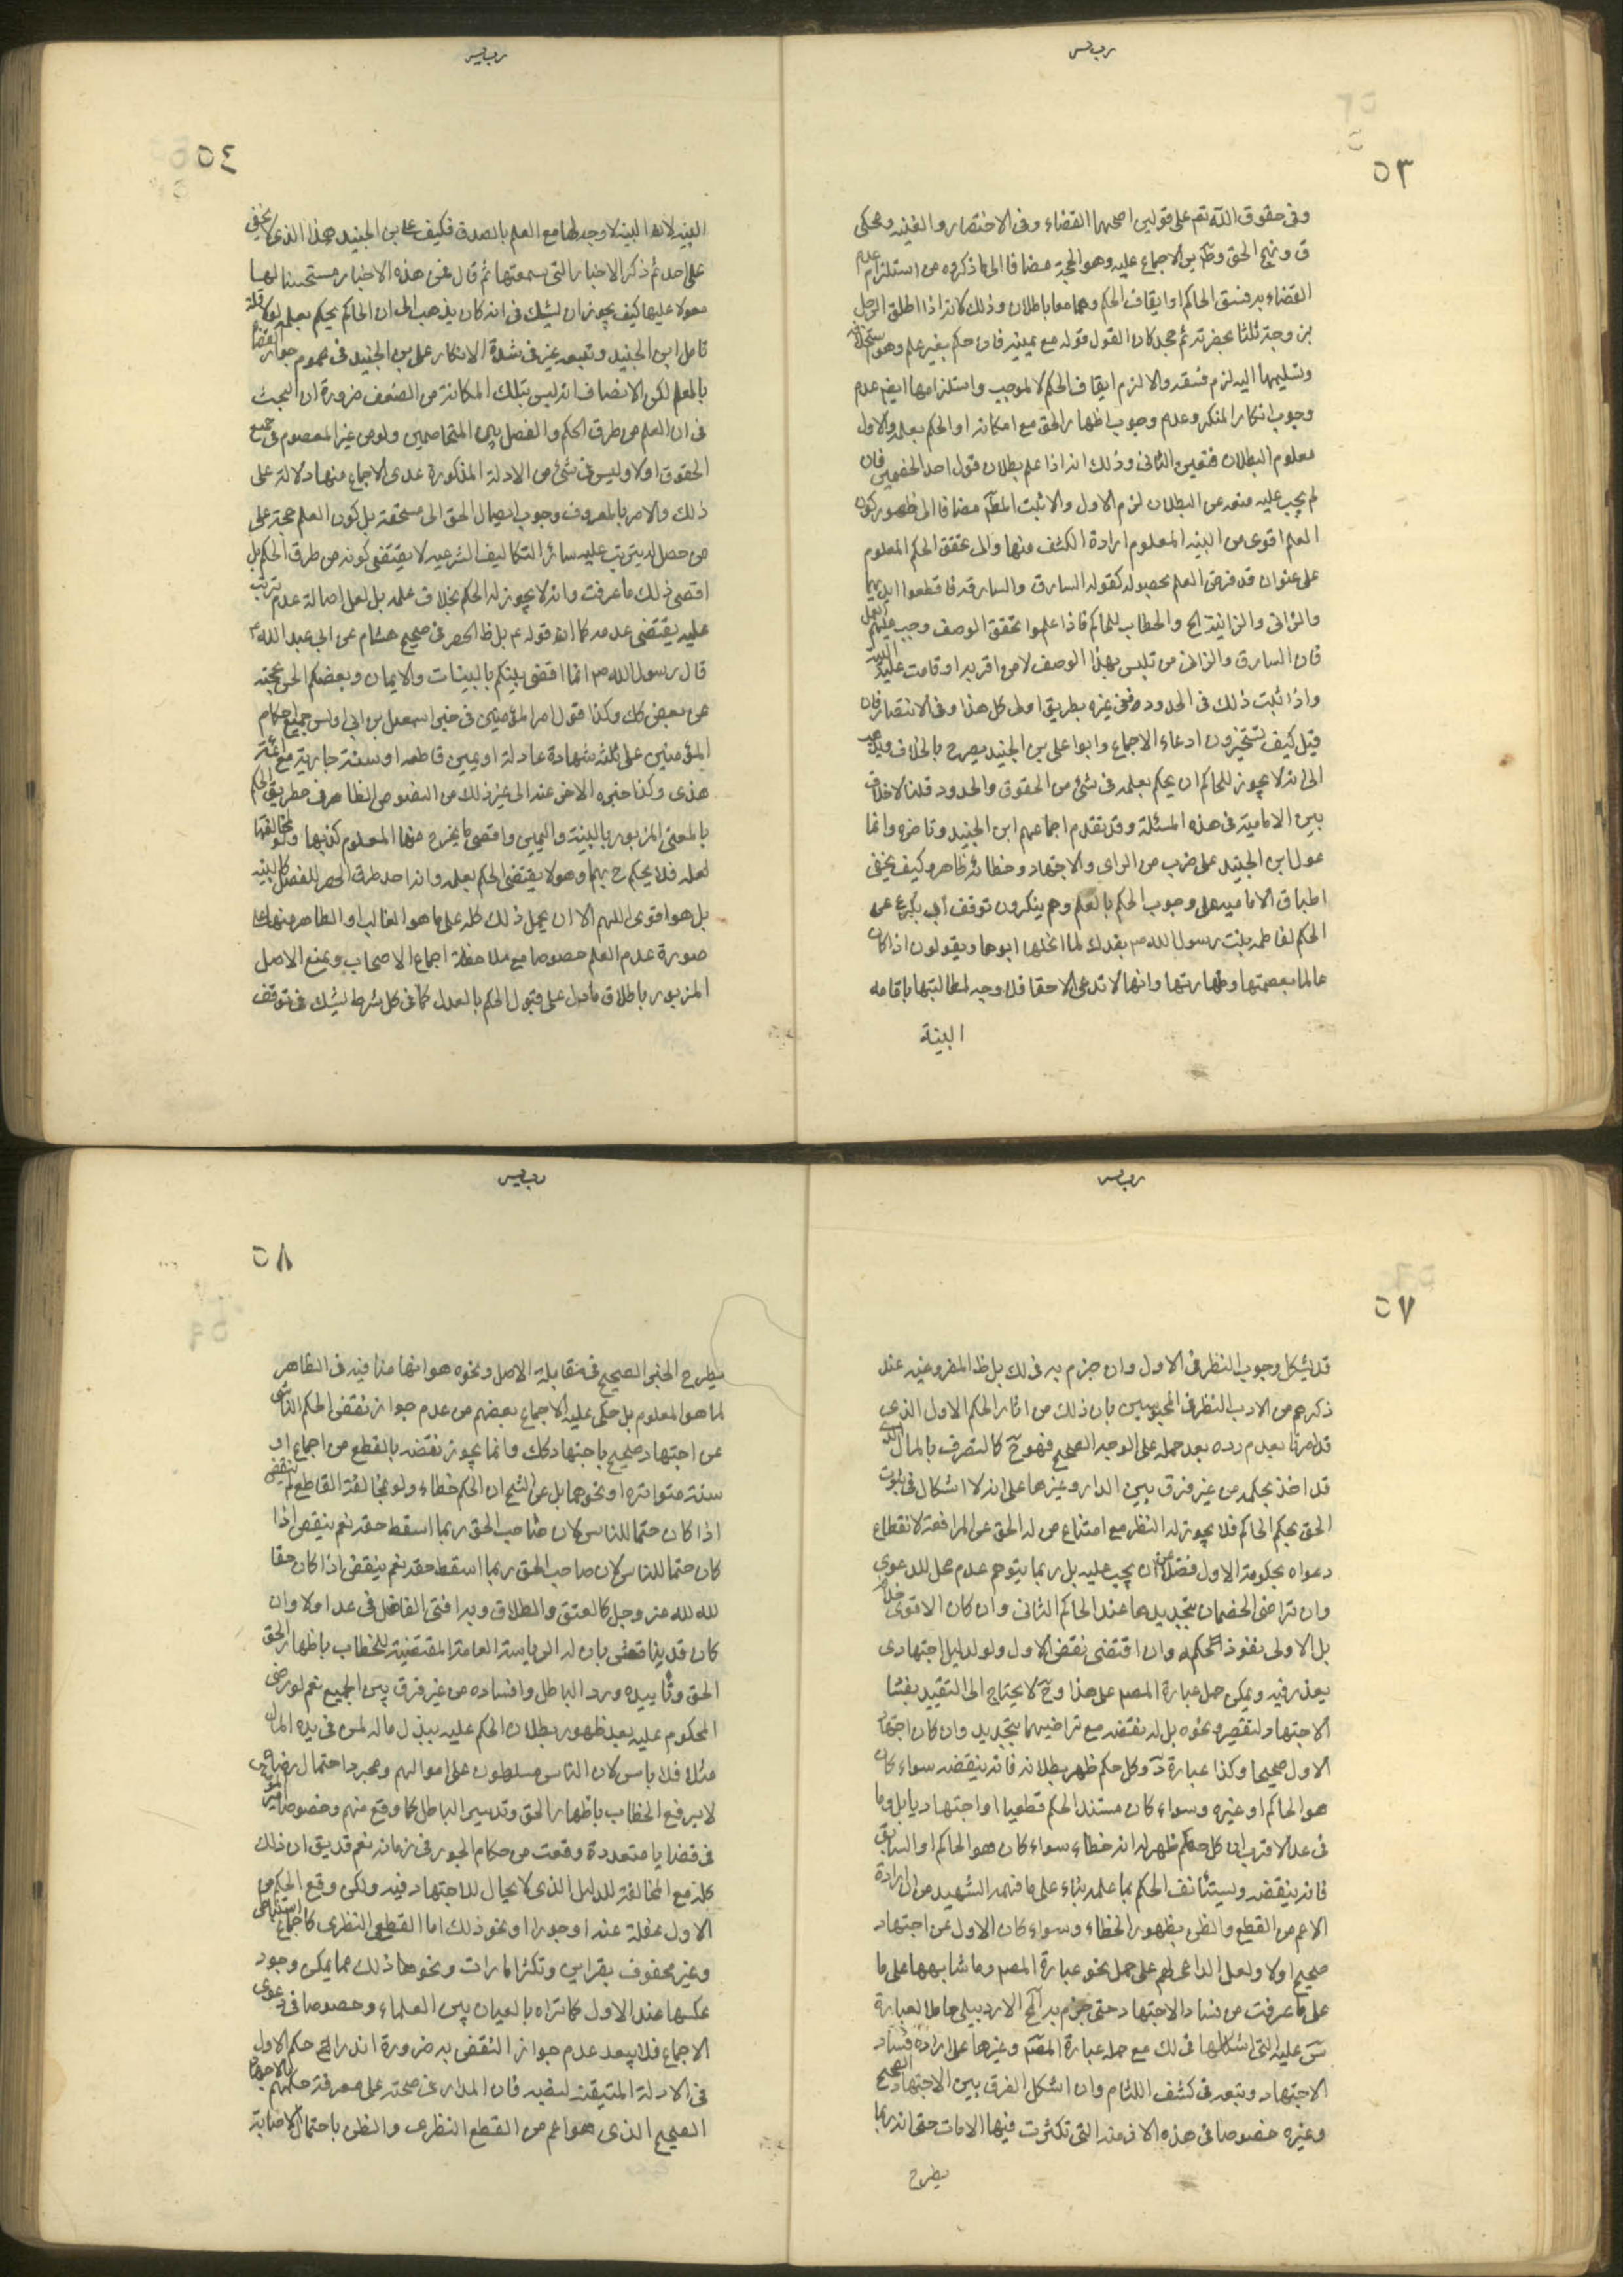 ٥٣
وفى حقوق الله تع على قولين اصحهما القضاء وفى الاختصار والغنيه ومحكى
ف ونهج الحق وظاهر الاجماع عليه وهو الحجة مضافا الى ما ذكروه من استلزام عدم
القضاء به فسق الحاكم او ايقاف الحكم وهما معا باطلان وذلك لانه اذا طلق الرجل
زوجته ثلثا بحضرته ثم جحد كان القول قوله مع يمينه فان حكم بغير علم وهو استحلافه
وتسليمها اليه لزم فسقه والا لزم ايقاف الحكم لا لموجب واستلزامها ايض عدم
وجوب انكار المنكر وعدم وجوب اظهار الحق مع امكانه او الحكم بعلمه والاول
معلوم البطلان فتعين الثانى وذلك انه اذا علم بطلان قول احد الخصمين فان
لم يجب عليه منعه عن البطلان لزم الاول والا ثبت المط مضافا الى ظهور كون
العلم اقوى من البينه المعلوم ارادة الكشف منها والى تحقق الحكم المعلوم
على عنوان قد فرض العلم بحصوله كقوله السارق والسارقه فاقطعوا ايديهما
والزانى والزانية الخ والخطاب للحاكم فاذا علموا تحقق الوصف وجب عليهم العمل
فان السارق والزانى من تلبس بهذا الوصف لا من اقر به او قامت عليه البينة
واذا ثبت ذلك فى الحدود ففى غيره بطريق اولى كل هذا وفى الانتصار فان
قيل كيف تستجيزون ادعاء الاجماع وابو على بن الجنيد يصرح بالخلاف ويذهب
الى انه لا يجوز للحاكم ان يحكم بعلمه فى شئ من الحقوق والحدود قلنا لا خلاف
بين الامامية فى هذه المسئلة وقد تقدم اجماعهم ابن الجنيد وتاخره وانما
عول ابن الجنيد على ضرب من الراى والاجتهاد وخطائه ظاهر وكيف يخفى
اطباق الاماميه على وجوب الحكم بالعلم وهم ينكرون توقف ابى بكر عن
الحكم لفاطمه بنت رسول الله ص بفدك لما انحلها ابوها ويقولون اذا كان
عالما بعصمتها وطهارتها وانها لا تدعى الا حقا فلا وجه لمطالبتها باقامه
البينة
٥٤
البينه لان البينه لا وجه لها مع العلم بالصدق فكيف على بن الجنيد هذا الذى لا يخفى
على احد ثم ذكر الاخبار التى سمعتها ثم قال فمن هذه الاخبار مستحسنا لها
معولا عليها كيف يجوز ان يشك فى انه كان يذهب الى ان الحاكم يحكم بعلمه لولا قلة
تامل ابن الجنيد وتبعه غيره فى شدة الانكار على بن الجنيد فى عموم جواز القضاء
بالعلم لكن الانصاف انه ليس بتلك المكانة من الضعف ضرورة ان البحث
فى ان العلم من طرق الحكم والفصل بين المتخاصمين ولو من غير المعصوم فى جميع
الحقوق اولا وليس فى شئ من الادلة المذكورة عدى الاجماع منها دلالة على
ذلك والامر بالمعروف ووجوب ايصال الحق الى مستحقه بل كون العلم حجة على
من حصل له يترتب عليه سائر التكاليف الشرعيه لا يقتضى كونه من طرق الحكم بل
اقصى ذلك ما عرفت وانه لا يجوز له الحكم بخلاف علمه بل لعل اصالة عدم ترتب
عليه يقتضى عدمه كما انه قوله ع بل ظ الحصر فى صحيح هشام عن ابى عبد الله ع
قال رسول الله ص انما اقضى بينكم بالبينات والايمان وبعضكم الحن بحجته
من بعض كك وكذا قول امير المؤمنين فى خبر اسمعيل بن ابى اويس جميع احكام
المؤمنين على ثلثه شهادة عادلة او يمين قاطعه او سنة جارية مع ائمة
هدى وكذا خبره الاخر عنه الى غير ذلك من النصوص الظاهرة فى حصر طريق الحكم
بالمعنى المزبور بالبينة واليمين واقصى ما يخرج منها المعلوم كذبها ومخالفتها
لعله فلا يحكم ح بهما وهو لا يقتضى الحكم بعلمه وانه احد طرق الحصر للفصل كالبينه
بل هو اقوى اللهم الا ان يحمل ذلك كله على ما هو الغالب او الظاهر منها على
صورة عدم العلم خصوصا مع ملاحظة اجماع الاصحاب ويمنع الاصل
المزبور باطلاق ما دل على قبول الحكم بالعدل كما فى كل شرط يشك فى توقف
٥٧
قد يشكل وجوب النظر فى الاول وان جزم به فى لك بل ظ المفروغيه عند
ذكرهم من الادب النظر فى المحبوسين بان ذلك من اثار الحكم الاول الذى
قد امرنا بعدم رده بعد حمله على الوجه الصحيح فهو ح كالتصرف بالمال الذى
قد اخذ بحكمه من غير فرق بين الدار وغيرها على انه لا اشكال فى ثبوت
الحق بحكم الحاكم فلا يجوز له النظر مع امتناع من له الحق عن المرافعة لانقطاع
دعواه بحكومة الاول فضلا عن ان يجب عليه بل ربما يتوهم عدم محل للدعوى
وان تراضى الخصمان بتجديدها عند الحاكم الثانى وان كان الاقوى خلافه
بل الاولى نفوذ الحكم له وان اقتضى نقض الاول ولو لدليل اجتهادى
يعذر فيه ويمكن حمل عبارة المصم على هذا وح لا يحتاج الى التقييد بفساد
الاجتهاد لتقصير ونحوه بل له نقضه مع تراضيهما بتجديد وان كان اجتهاد
الاول صحيحا وكذا عبارة د وكل حكم ظهر بطلانه فانه ينقضه سواء كان
هو الحاكم او غيره وسواء كان مستند الحكم قطعيا او اجتهاديا بل وما
فى عد الاقرب ان كل حكم ظهر له انه خطاء سواء كان هو الحاكم او السابق
فانه ينقضه ويستانف الحكم بما علمه بناء على ما فهمه الشهيد من ارادة
الاعم من القطع والظن بظهور الخطاء وسواء كان الاول عن اجتهاد
صحيح اولا ولعل الداعى لهم على حمل نحو عبارة المصم وما شابهها على ما
على ما عرفت من فساد الاجتهاد حتى جزم به الاردبيلى حاملا لعبارة
عليه التى اشكلها فى لك مع حمله عبارة المصم وغيرها على ارادة فساد
الاجتهاد وتبعه فى كشف اللثام وان اشكل الفرق بين الاجتهاد الصحيح
وغيره خصوصا فى هذه الازمنه التى تكثرت فيها الامارات حتى انه ربما
يطرح
٥٨
يطرح الخبر الصحيح فى مقابلة الاصل ونحوه هو انها منافيه فى الظاهر
لما هو المعلوم بل حكى عليه الاجماع بعضهم من عدم جواز نقض الحكم الناشى
عن اجتهاد صحيح باجتهاد كك وانما يجوز نقضه بالقطع من اجماع او
سنة متواترة او نحوهما بل عن الشيخ ان الحكم خطاء ولو بمخالفة القاطع لم ينقض
اذا كان حقا للناس لان صاحب الحق ربما اسقط حقه نعم ينقض اذا
كان حقا للناس لان صاحب الحق ربما اسقط حقه نعم ينقض اذا كان حقا
لله لله عز وجل كالعتق والطلاق وبه افتى الفاضل فى عد اولا وان
كان قد يناقش بان له الرياسة العامة المقتضية للخطاب باظهار الحق
الحق وتاييده ورد الباطل وافساده من غير فرق بين الجميع نعم لو رضى
المحكوم عليه بعد ظهور بطلان الحكم عليه ببذل ماله لمن فى يده المال
مثلا فلا باس لان الناس مسلطون على اموالهم ومجرد احتمال رضاه
لا يرفع الخطاب باظهار الحق وتدمير الباطل كما وقع منهم وخصوصا امير المؤمنين
فى قضايا متعددة وقعت من حكام الجور فى زمانه نعم قد يق ان ذلك
كله مع المخالفة للدليل الذى لا يجال للاجتهاد فيه ولكن وقع الحكم من
الاول غفلة عنه او جورا او نحو ذلك اما القطعى النظرى كاجماع استنباطى
وغير محفوف بقراين وتكثر امارات ونحوها ذلك مما يمكن وجود
عكسها عند الاول كما تراه بالعيان بين العلماء وخصوصا فى دعوى
الاجماع فلا يبعد عدم جواز النقض به ضرورة اندراج حكم الاول
فى الادلة المتيقنه لنفيه فان المدار عن صحته على معرفة حكمهم بالاجتهاد
الصحيح الذى هو اعم من القطع النظرى والظن باحتمال الاصابة